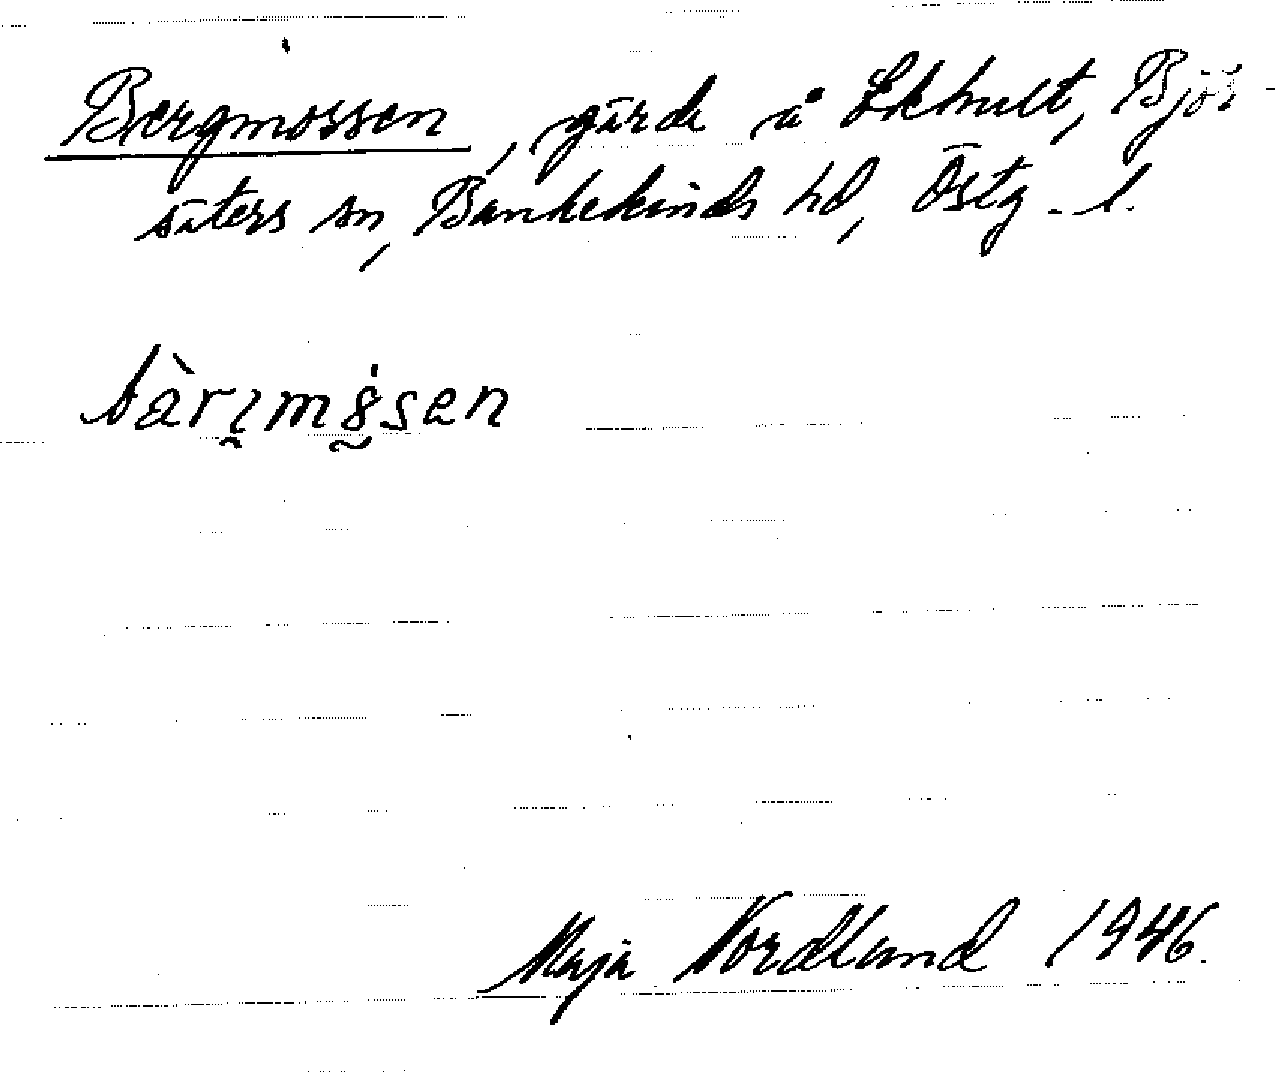 Bergmossen, gärde å Ekhult, Björ-
säters sn, Bankekinds hd, Östg. l.
bàrɩ̯mȯ̰s̱en
Maja Nordlund 1946.